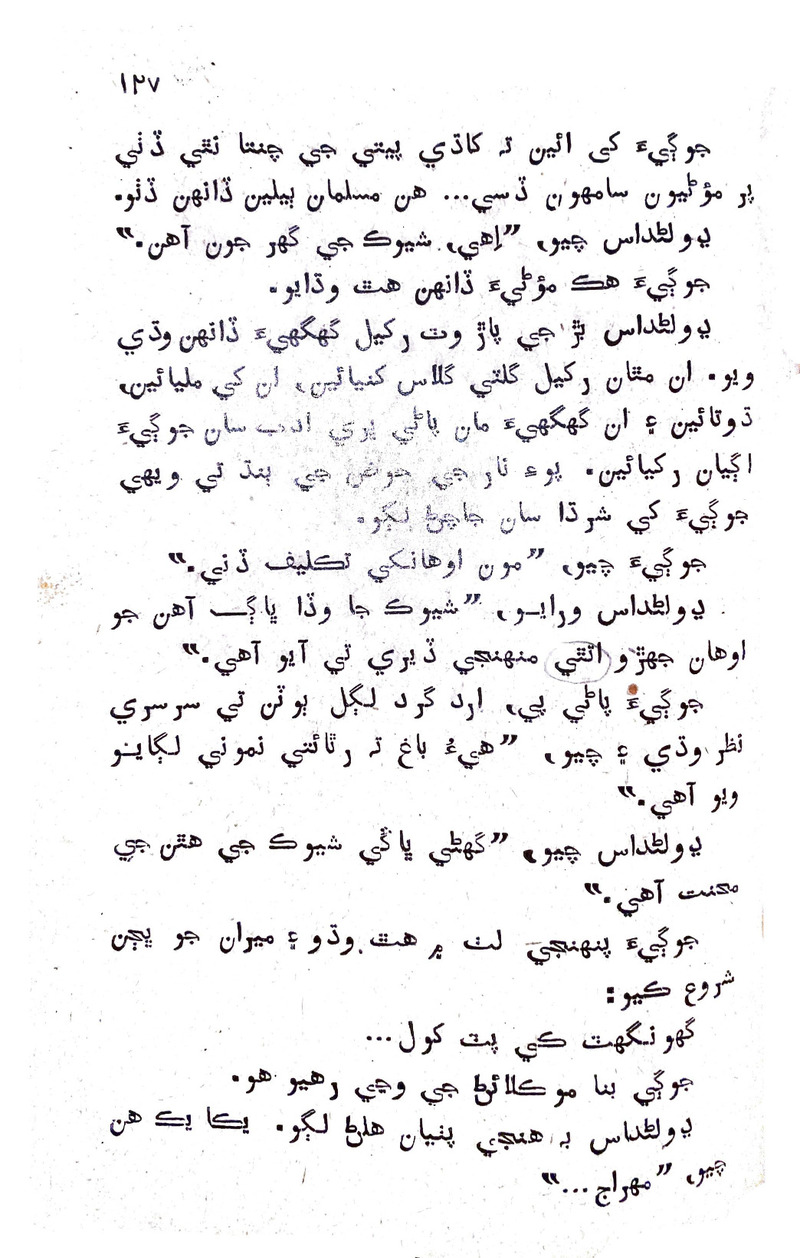 ١٢٧
جوڳيءَ کي ائين تہ کاڌي پيتي جي چنتا نٿي ڏٺي
پر مؤڻيون سامهون ڏسي... هن مسلمان ٻيلين ڏانهن ڏٺو.
ڍولڻداس چيو، ”اِهي، شيوڪ جي گهر جون آهن.“
جوڳيءَ هڪ مؤڻيءَ ڏانهن هٿ وڌايو.
ڍولڻداس بڙ جي پاڙ وٽ رکيل گهگهيءَ ڏانهن وڌي
ويو. ان مٿان رکيل گلٽي گلاس کنيائين، ان کي ملياٿين،
ڌوتائين ۽ ان گهگهيءَ مان پاڻي ڀري ادب سان جوڳيءَ
اڳيان رکيائين. پوءِ نار جي حوض جي ٻنڌ تي ويهي
جوڳيءَ کي شرڌا سان جاچڻ لڳو.
جوڳيءَ چيو، ”مون اوهانکي تڪليف ڏني.“
ڍولڻداس ورايو، ”شيوڪ جا وڏا ڀاڳ آهن جو
اوهان جهڙو اتٿي منهنجي ڏيري تي آيو آهي.“
جوڳيءَ پاڻي پي، ارد گرد لڳل ٻوٽن تي سرسري
نظر وڌي ۽ چيو، ”هيءُ باغ تہ رٿائتي نموني لڳايو
ويو آهي.“
ڍولڻداس چيو، ”گهڻي ڀاڱي شيوڪ جي هٿن جي
محنت آهي.“
جوڳيءَ پنهنجي لٺ ۾ هٿ وڌو ۽ ميران جو ڀڄن
شروع ڪيو:
گهونگهٽ ڪي پٽ کول...
جوڳي بنا موڪلائڻ جي وڃي رهيو هو.
ڍولڻداس بہ هنجي پٺيان هلڻ لڳو. يڪايڪ هن
چيو، ”مهراج...“